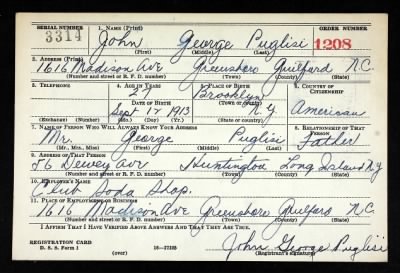 SERIAL NUMBER 1. NAME (Print) ORDER NUMBER
3314 John George Puglisi 1208
(First) (Middle) (Last)
2. ADDRESS (Print)
1616 Madison Ave Greensboro Guilford N.C.
(Number and street or R. F. D. number) (Town) (County) (State)
3. TELEPHONE 4. AGE IN YEARS 5. PLACE OF BIRTH 6. COUNTRY OF CITIZENSHIP
27 Brooklyn
DATE OF BIRTH (Town or county)
Sept 12 1913 N.Y American
(Exchange) (Number) (Mo.) (Day) (Yr.) (State or country)
7. NAME OF PERSON WHO WILL ALWAYS KNOW YOUR ADDRESS 8. RELATIONSHIP OF THAT PERSON
Mr. George Puglisi Father
(Mr., Mrs., Miss) (First) (Middle) (Last)
9. ADDRESS OF THAT PERSON
56 Dewey Ave Huntington Long Island N.Y
(Number and street or R. F. D. number) (Town) (County) (State)
10. EMPLOYER'S NAME
Club Soda Shop.
11. PLACE OF EMPLOYMENT OR BUSINESS
1616 Madison Ave Greensboro Guilford N.C.
(Number and street or R. F. D. number) (Town) (County) (State)
I AFFIRM THAT I HAVE VERIFIED ABOVE ANSWERS AND THAT THEY ARE TRUE.
REGISTRATION CARD
D. S. S. Form 1 (over) 16—17105 John George Puglisi
(Registrant's signature)